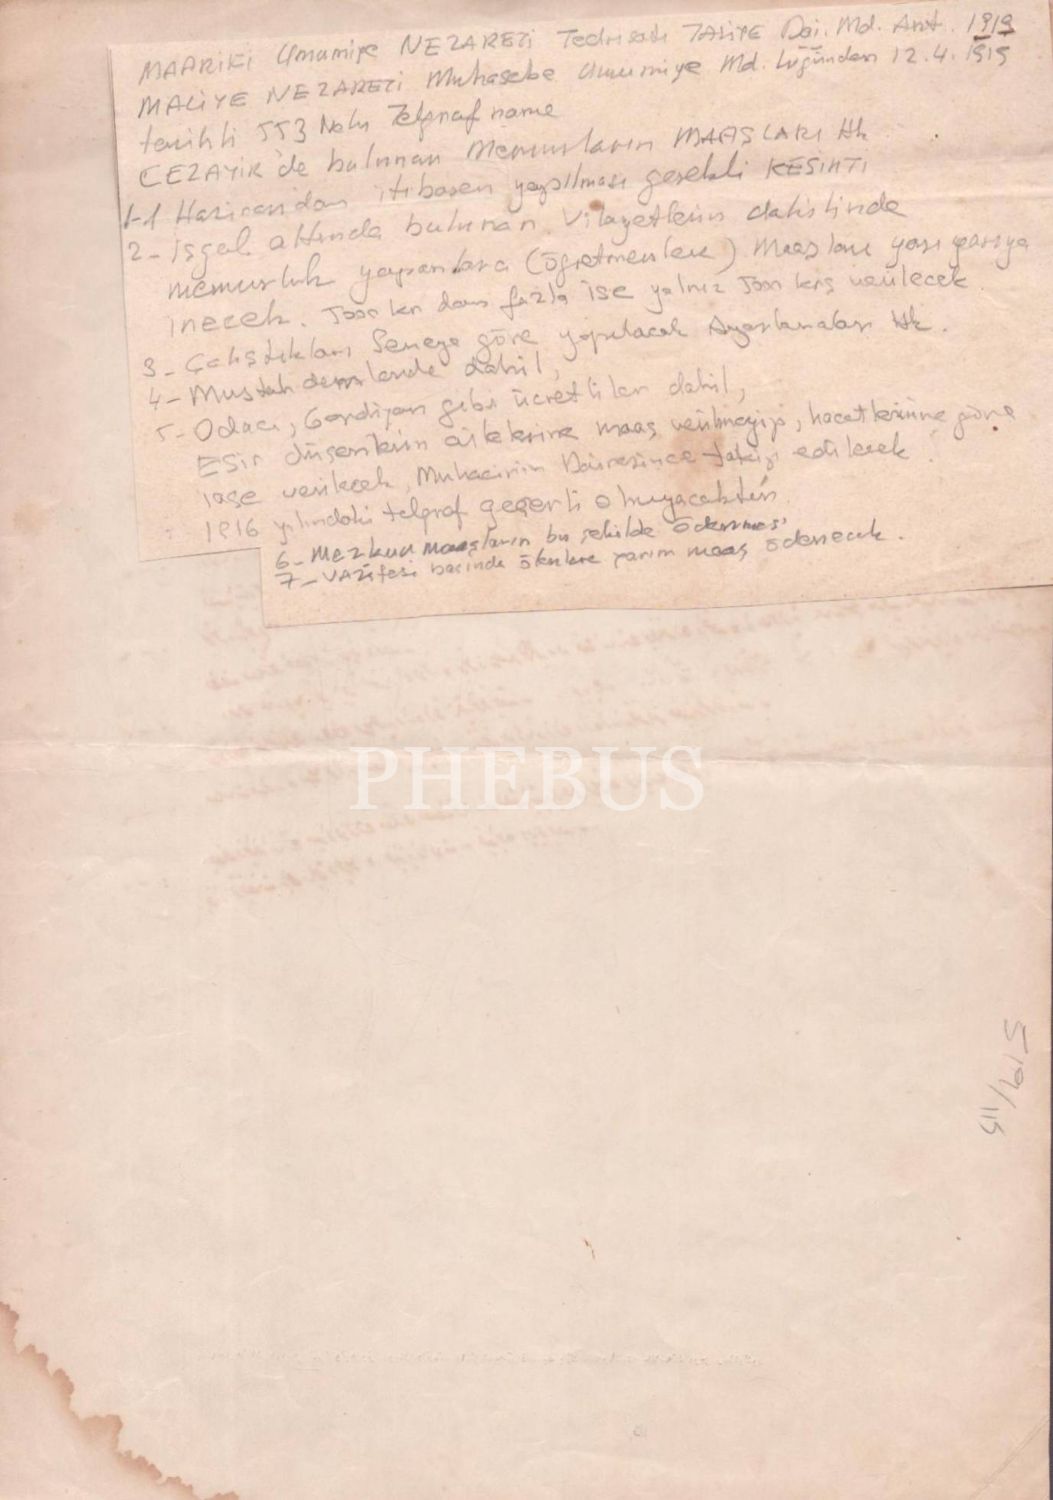 MAARİFİ Umumiye NEZARETİ Tedrisatı TALİYE Dai. Md. Ant. 1919
MALİYE NEZARETİ Muhasebe Umumiye Md. lüğünden 12.4.1919
tarihli 553 Nolu Telgrafname
CEZAYİR'de bulunan Memurların MAAŞLARI Hk.
1-1 Hazirandan itibaren yapılması gerekli KESİNTİ
2- İşgal altında bulunan Vilayetlerin dahilinde
memurluk yapanlara (öğretmenlere) Maaşları yarı yarıya
inecek. den fazla ise yalnız krş verilecek.
3- Çalıştıkları Seneye göre yapılacak Ayarlamaları Hk.
4- Mustahdemlerde dahil,
5- Odacı, Gardiyan gibi ücretliler dahil,
Esir düşenlerin ailelerine maaş verilmeyip, hacetlerine göre
iaşe verilecek, Muhacirin Dairesince edilecek.
1916 yılındaki telgraf geçerli olmayacaktır.
6- Mezkur maaşların bu şekilde ödenmesi
7- VAZifesi başında ölenlere yarım maaş ödenecek.
PHEBUS
519/115